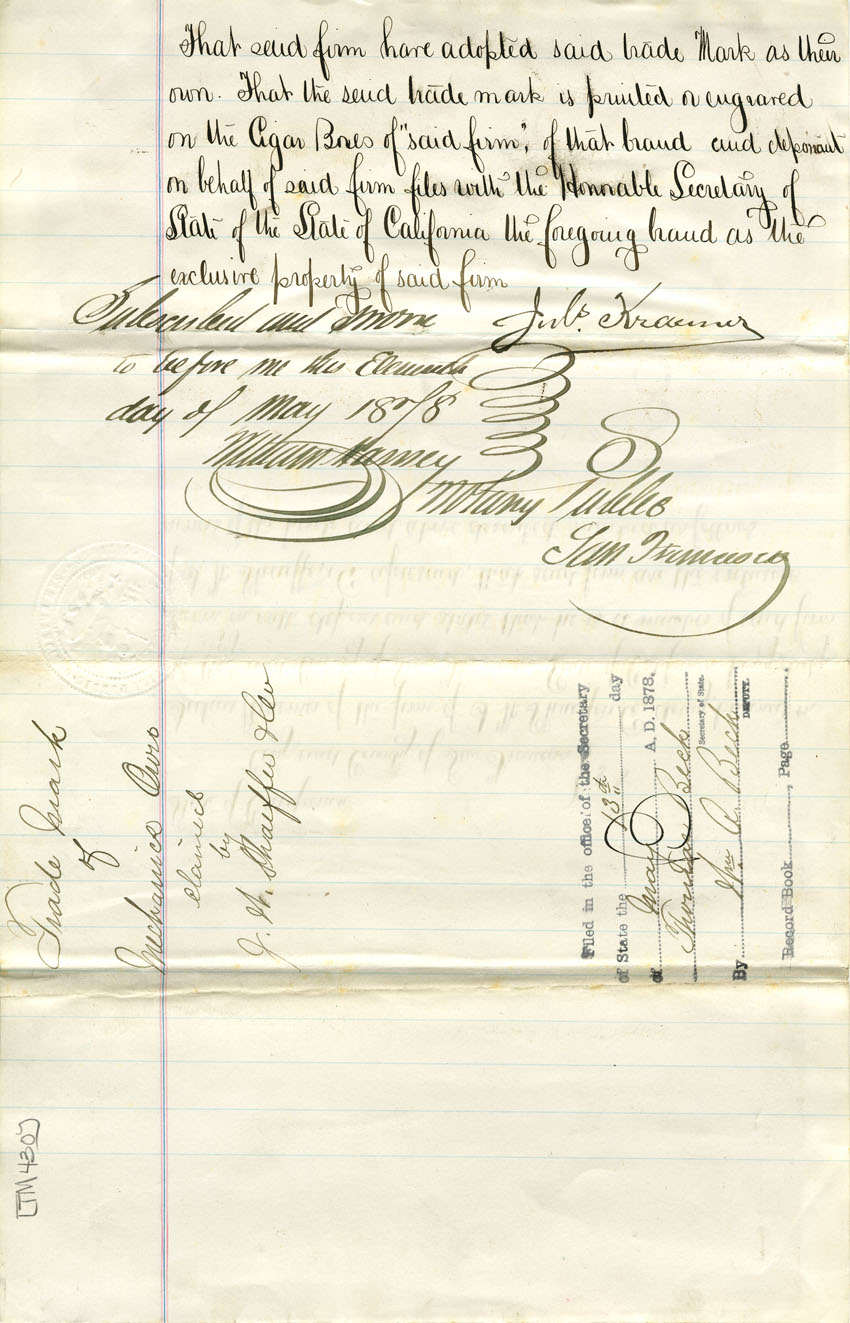 That said firm have adopted said trade Mark as their
own. That the said trade mark is printed or engraved
on the Cigar Boxes of "said firm", of that brand and deponent
on behalf of said firm files with the Honorable Secretary of
State of the State of California the foregoing brand as the
exclusive property of said firm
Subscribed and Sworn
Juls. Kraemer
to before me this Eleventh
day of May 1878
William Harney
Notary Public
San Francisco
Trade Mark
of
Mechanics Own
claimed
by
J. W. Shaeffer & Co
Filed in the office of the Secretary
of State the 13th day
of May A. D. 1878.
Thomas Beck
Secretary of State.
By Wm Beck
DEPUTY.
Record Book, Page
[TM 430]